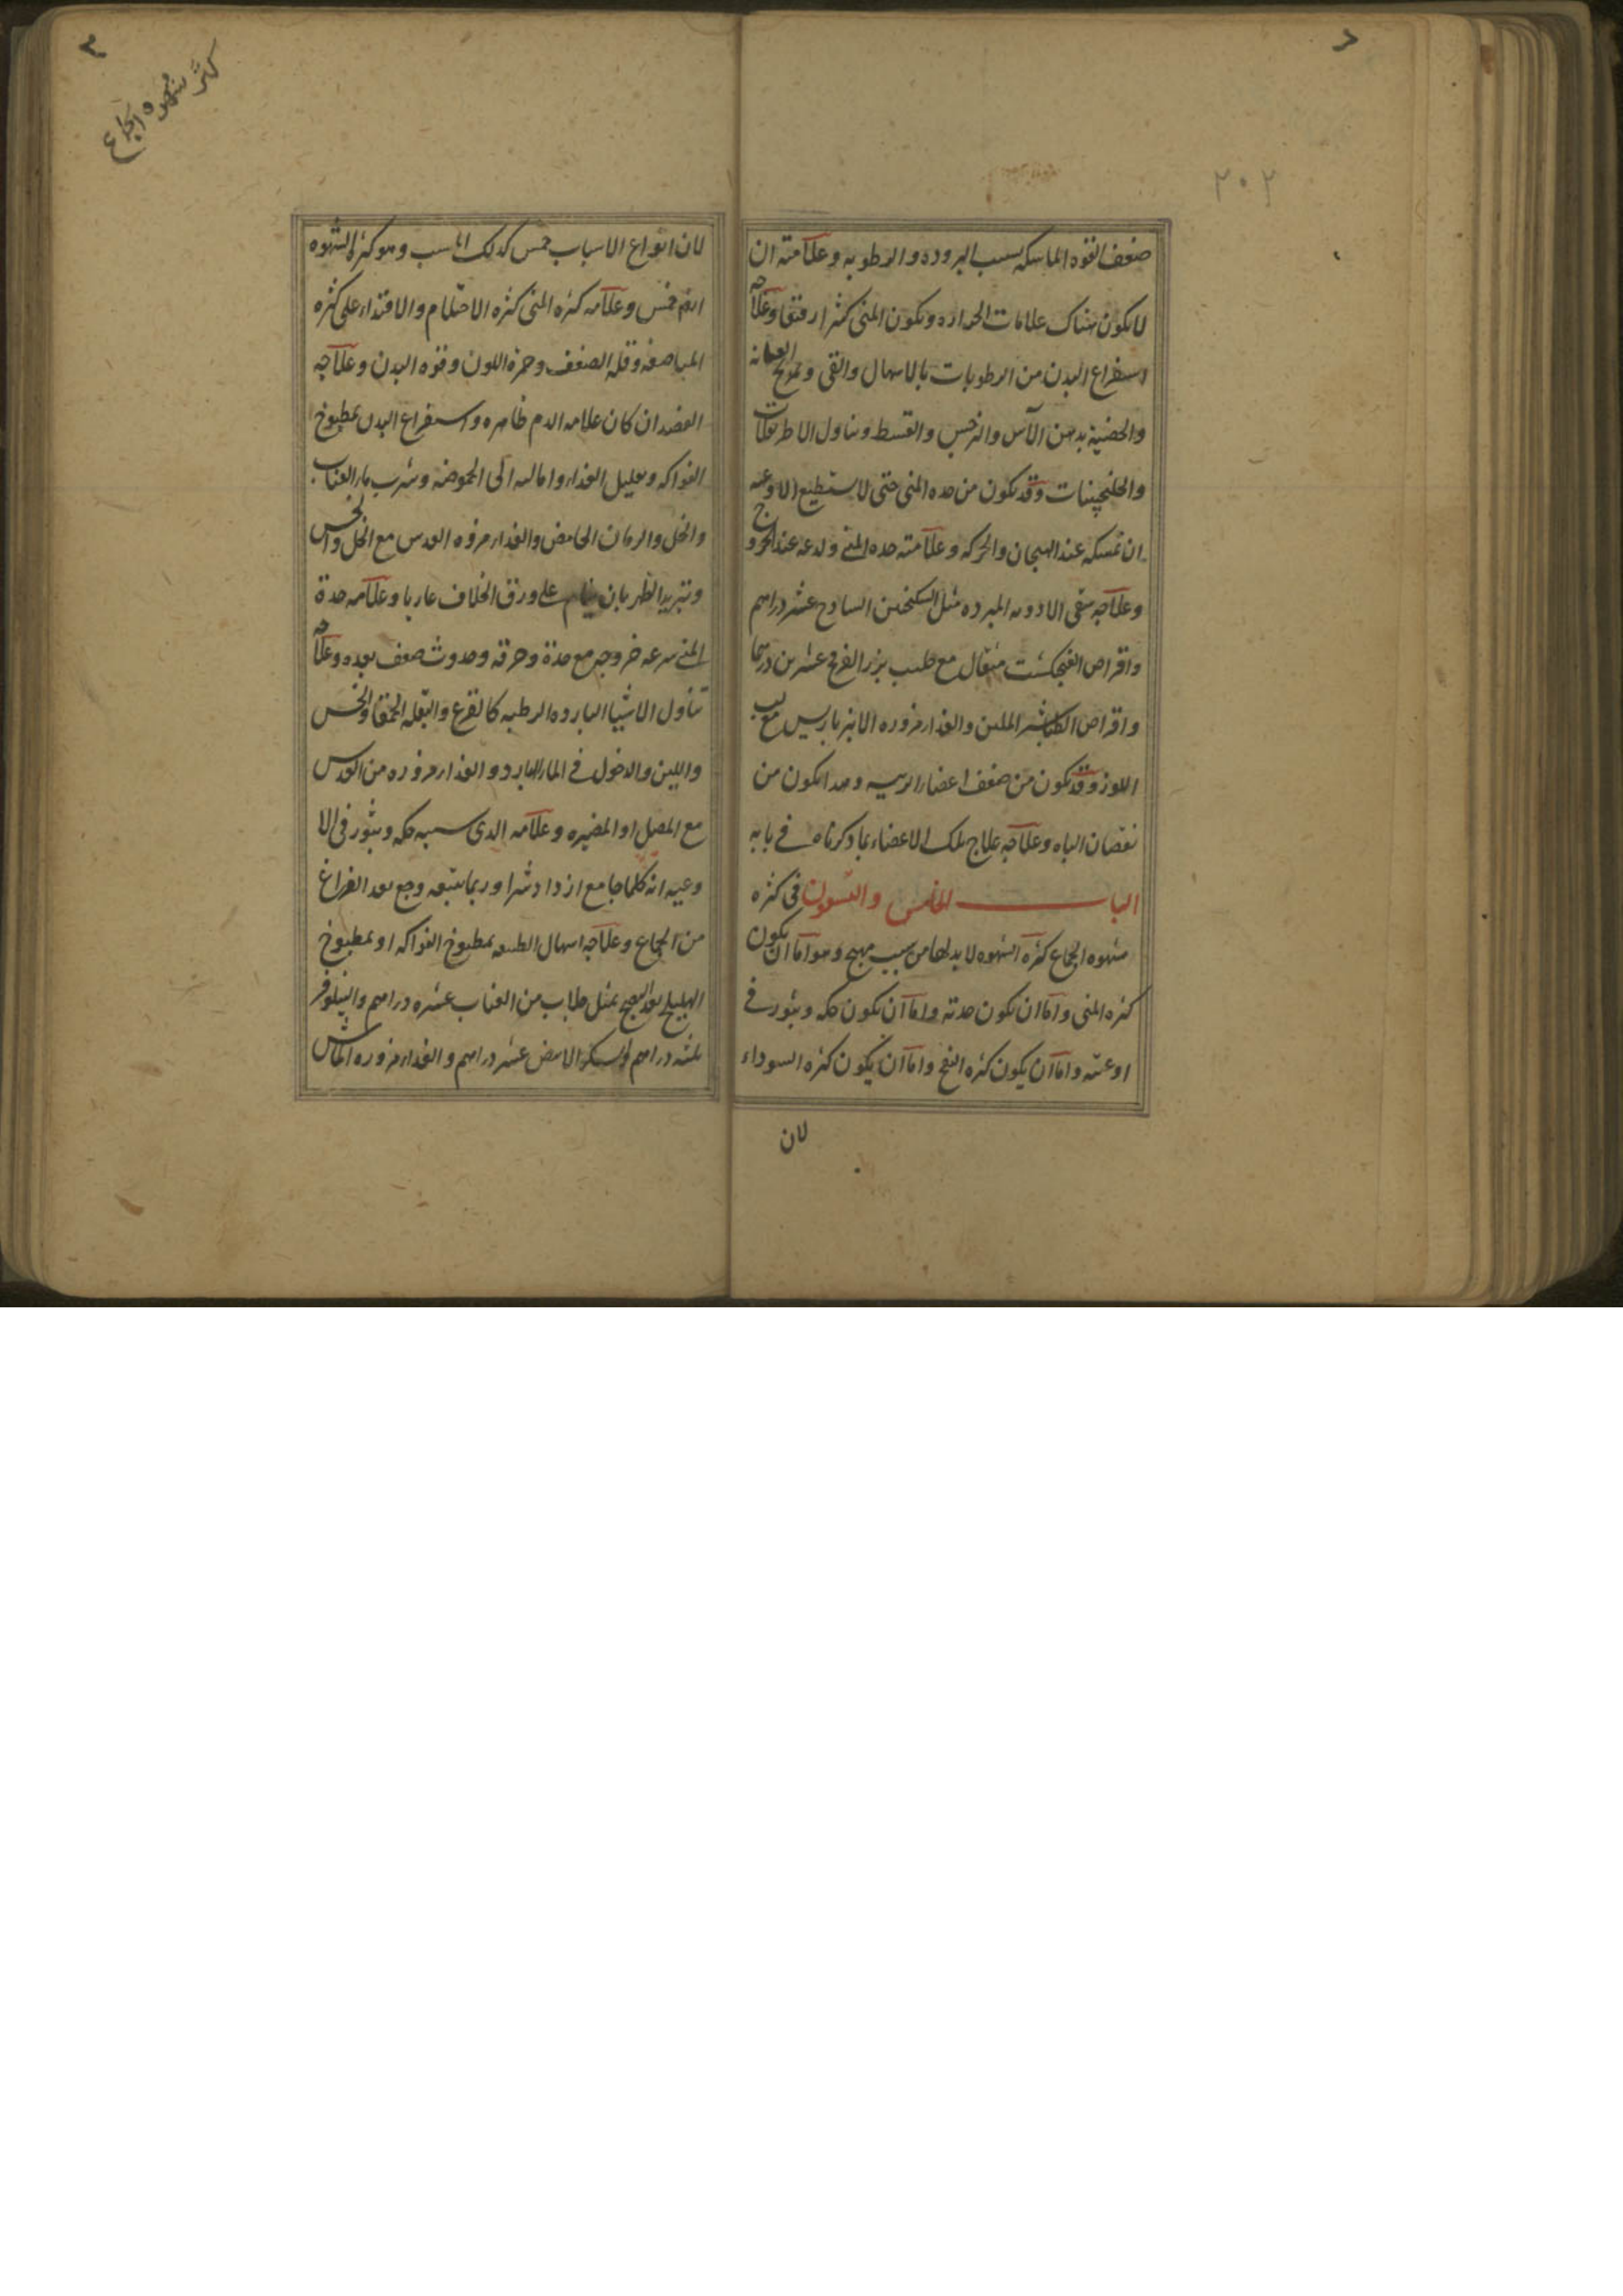 ٢٠٢
ضعف القوه الماسكه بسبب البروده والرطوبه وعلامته ان
لا يكون هناك علامات الحراره ويكون المنى كثيرا رقيقا وعلاجه
استفراغ البدن من الرطوبات بالاسهال والقى وتمريخ العانه
والخصية بدهن الآس والنرجس والقسط وتناول الاطريفلات
والجلنجبينات وقد يكون من حده المنى حتى لا يستطيع الاوعيه
ان تمسكه عند الهيجان والحركه وعلامته حده المنى ولدعه عند الخروج
وعلاجه سقى الادويه المبرده مثل السكنجبين الساذج عشر دراهم
واقراص الفنجكشت مثقال مع حليب بزر الفرفخ عشرين درهما
واقراص الطباشير الملين والغذاء مزوره الانبرباريس مع لب
اللوز وقد يكون من ضعف اعضاء الرئيسه وهذا يكون من
نقصان الباه وعلاجه علاج تلك الاعضاء بما ذكرناه فى بابه
الباب الخامس والتسعون فى كثره
شهوه الجماع كثره الشهوه لا بد لها من سبب مهيج وهو اما ان يكون
كثره المنى واما ان يكون حدته واما ان يكون حكه وبثور فى
اوعيته واما ان يكون كثره النفخ واما ان يكون كثره السوداء
لان
كثر شهوه الجماع
لان انواع الاسباب خمس كذلك السبب وهو كثره الشهوه
ايضا خمس وعلامه كثره المنى كثره الاحتلام والاقتدار على كثره
المباضعه وقله الضعف وحمرة اللون وقوه البدن وعلاجه
الفصد ان كان علامه الدم ظاهره واستفراغ البدن بمطبوخ
الفواكه وتقليل الغذاء وامالته الى الحموضه وشرب ماء العناب
والخل والرمان الحامض والغذاء مزوره العدس مع الخل والخس
وتبريد الظهر بان ينام على ورق الخلاف عاريا وعلامه حدة
المنى سرعه خروجه مع حدة وحرقه وحدوث ضعف بعده وعلاجه
تناول الاشيا البارده الرطبه كالقرع والبقله الحمقا والخس
واللبن والدخول فى الماء البارد والغذاء مزوره من العدس
مع المصل او المضيره وعلامه الذى سببه حكه وبثور فى الا
وعيه انه كلما جامع ازداد شرا وربما يتبعه وجع بعد الفراغ
من الجماع وعلاجه اسهال الطبيعه بمطبوخ الفواكه او بمطبوخ
الهليلج بعد النضج بمثل جلاب من العناب عشره دراهم والنيلوفر
ثلثه دراهم والسكر الابيض عشر دراهم والغذاء مزوره الماش